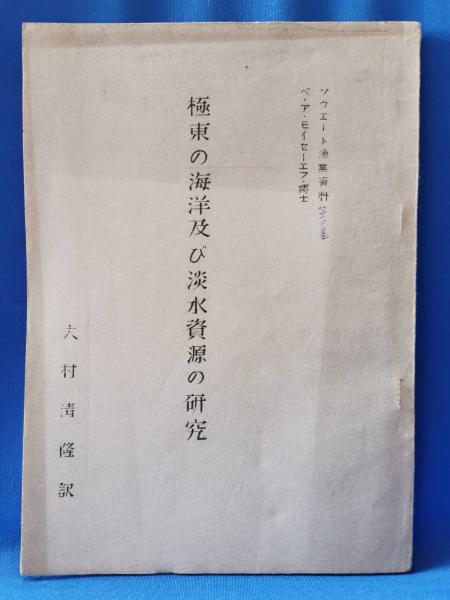 ソウエート漁業資料
ペ・ア・モイセーエフ・博士
極東の海洋及び淡水資源の研究
大村清隆訳